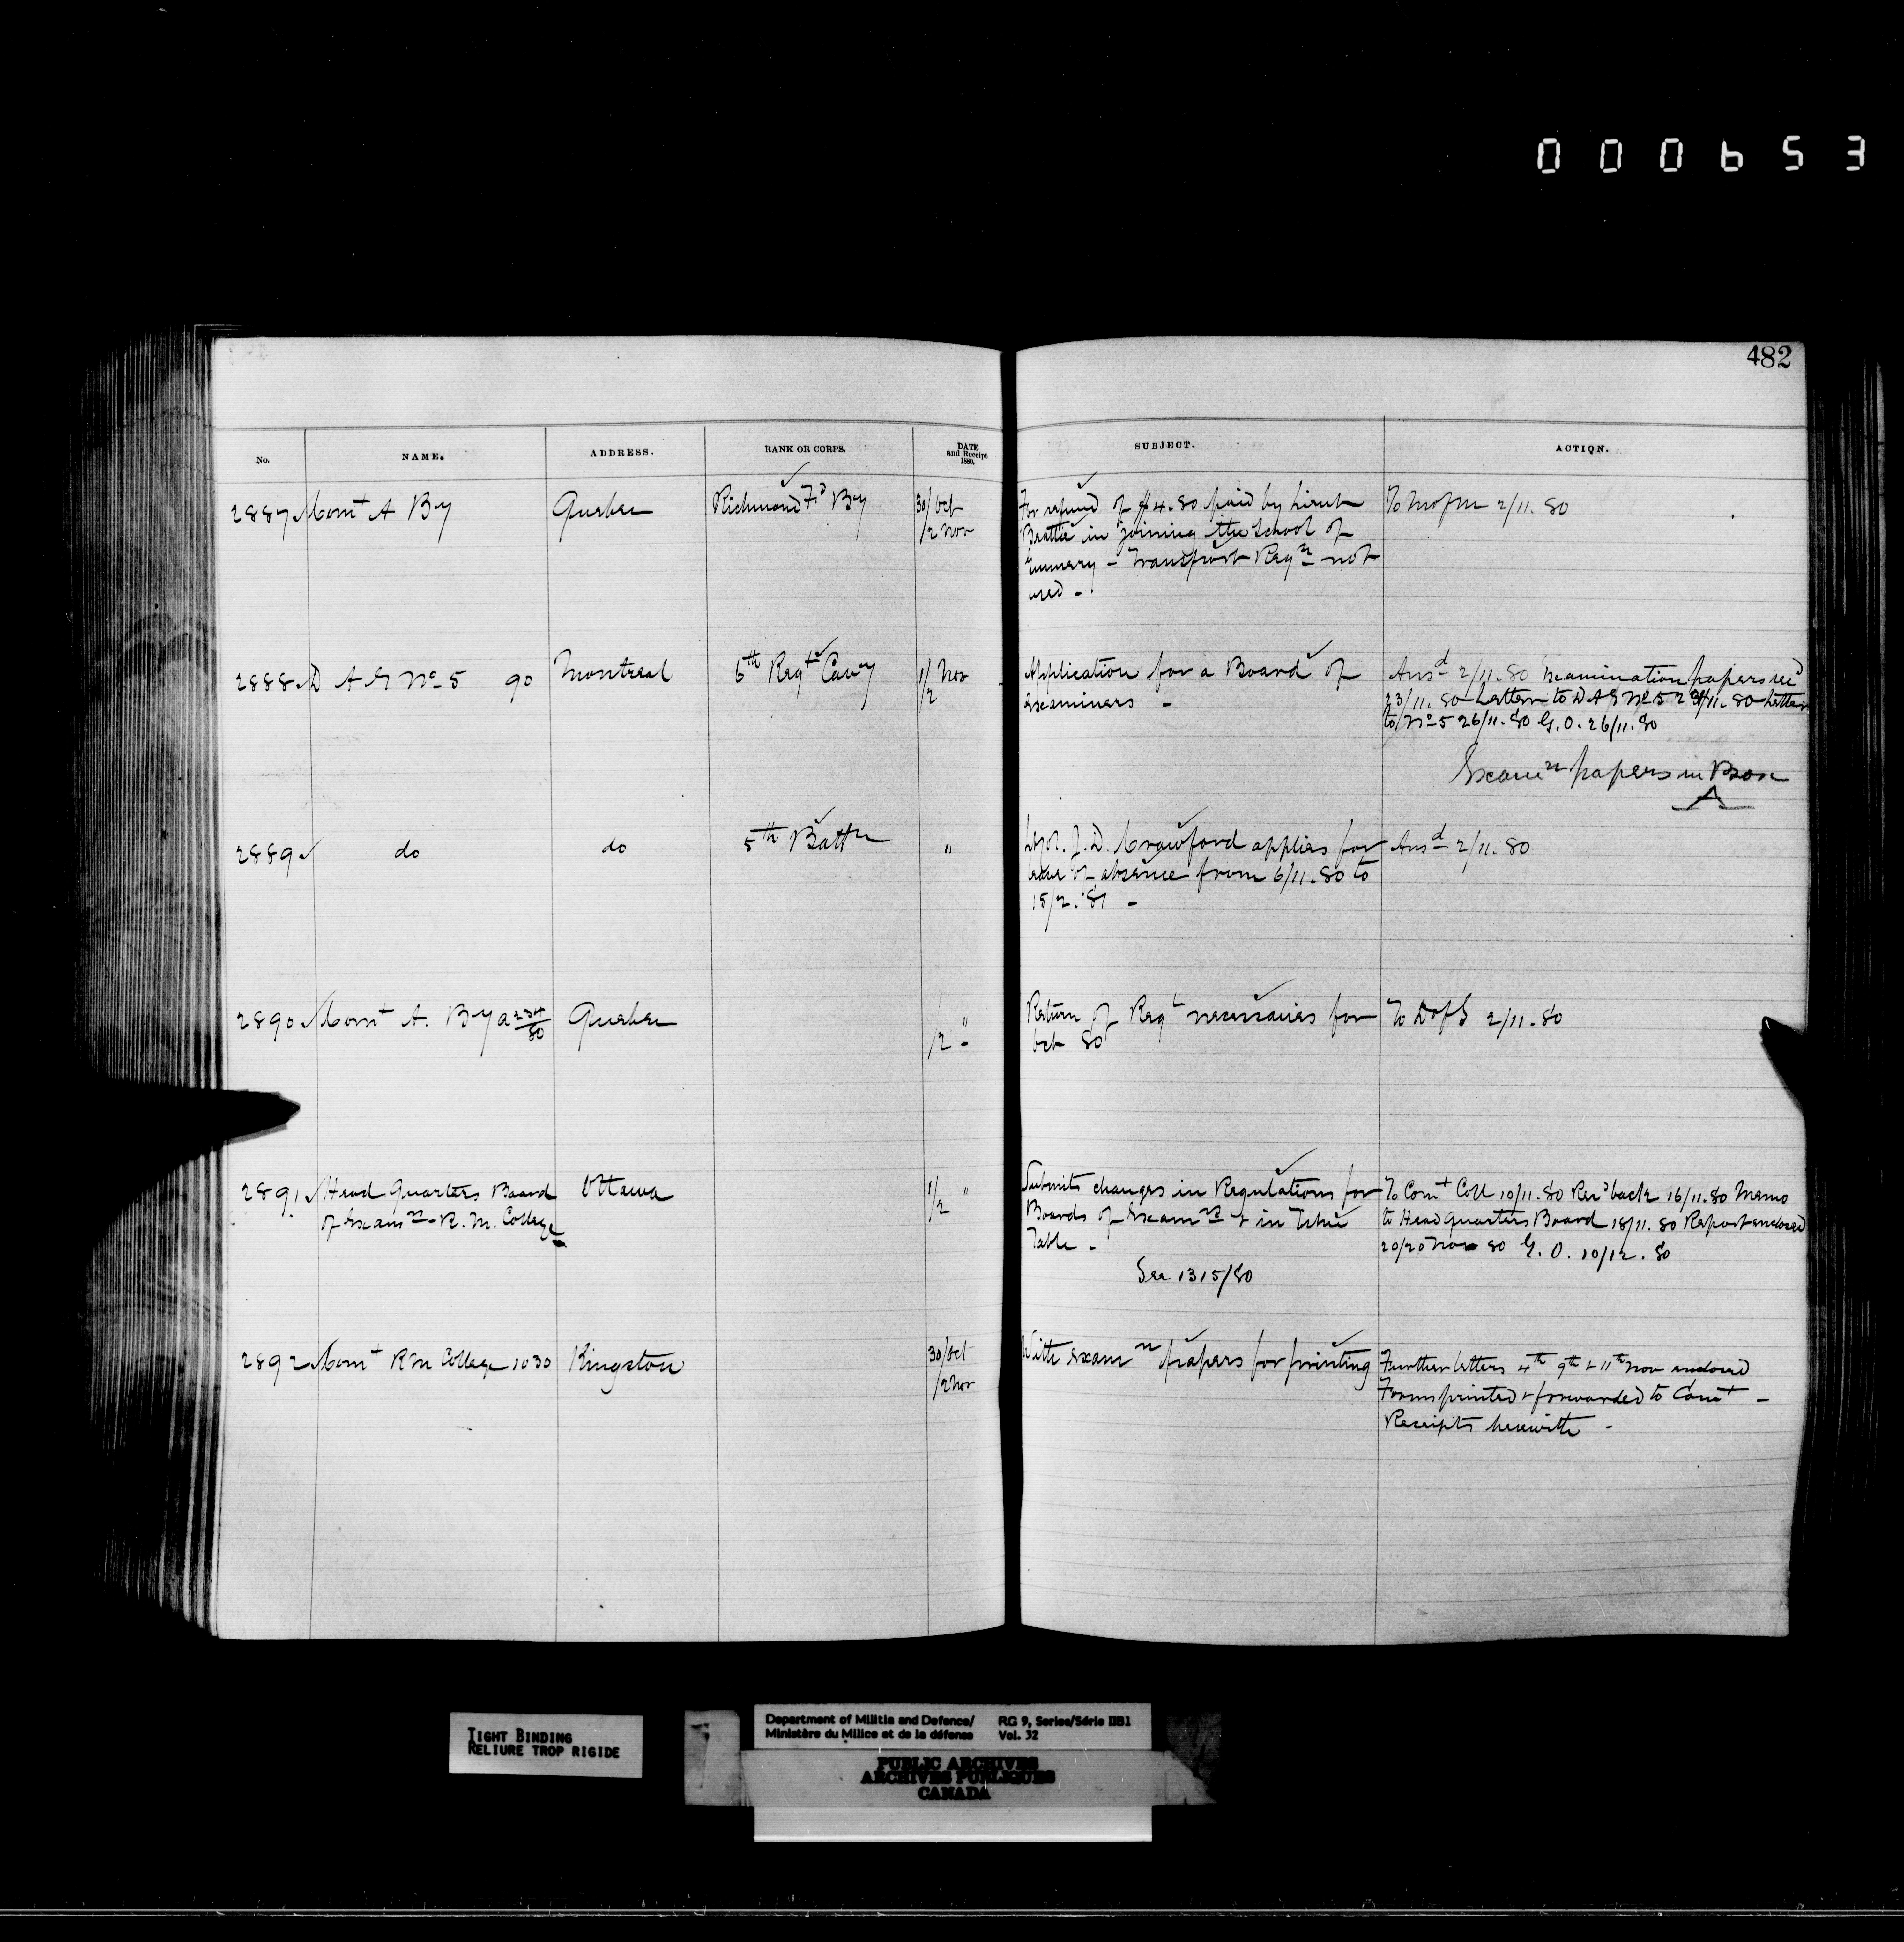 000653
482
No. NAME. ADDRESS. RANK OR CORPS. DATE and Receipt 1880. SUBJECT. ACTION.
2887 Comt A By Quebec Richmond Fd By 30/Oct /2 Nov
For refund of $4.80 paid by Lieut
Beattie in joining the School of
Gunnery - Transport Reqn not
used -
To M of M 2/11.80
2888 D A G No 5 90 Montreal 6th Regt Cavy 1/ Nov /2
Application for a Board of
Examiners -
Ansd 2/11.80 Examination papers recd
23/11.80 Letter to D A G No 5 24/11.80 Letter
to No 5 26/11.80 G.O. 26/11.80
Examn papers in Box
A
2889 do do 5th Battn "
J. D. Crawford applies for
leave of absence from 6/11.80 to
15/2.'81 -
Ansd 2/11.80
2890 Comt A. By a 234/80 Quebec 1/2 "
Return of Regl necessaries for
Oct 80
To D of S 2/11.80
2891 Head Quarters Board Ottawa 1/2 "
of Examn - R. M. College
Submits changes in Regulations for
Boards of Examrs & in
Table -
See 1315/80
To Comt Coll 10/11.80 Recd back 16/11.80 Memo
to Head Quarters Board 18/11.80 Report enclosed
20/20 Nov 80 G.O. 10/12.80
2892 Comt R M College 1030 Kingston 30/Oct /2 Nov
With Examn papers for printing
Further letters 4th 9th & 11th Nov enclosed
Forms printed & forwarded to Comt -
Receipts herewith -
TIGHT BINDING
RELIURE TROP RIGIDE
Department of Militia and Defence/ RG 9, Series/Série IIB1
Ministère du Milice et de la défense Vol. 32
PUBLIC ARCHIVES
ARCHIVES PUBLIQUES
CANADA